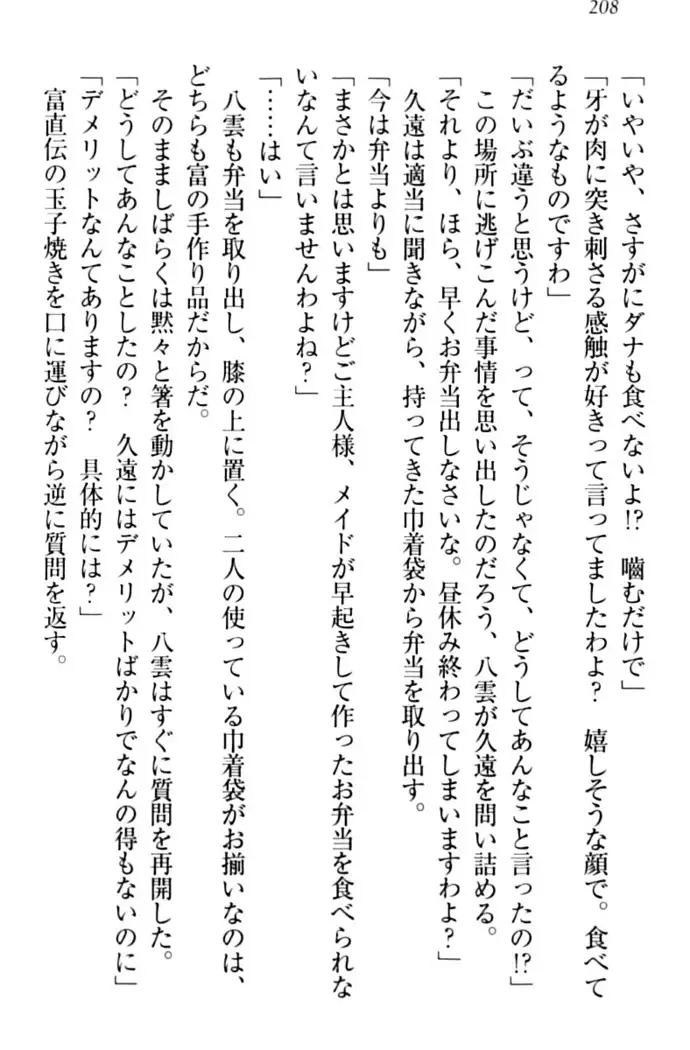 208
「いやいや、さすがにダナも食べないよ!?　噛むだけで」
「牙が肉に突き刺さる感触が好きって言ってましたわよ?　嬉しそうな顔で。食べて
るようなものですわ」
「だいぶ違うと思うけど、って、そうじゃなくて、どうしてあんなこと言ったの!?」
　この場所に逃げこんだ事情を思い出したのだろう、八雲が久遠を問い詰める。
「それより、ほら、早くお弁当出しなさいな。昼休み終わってしまいますわよ?」
　久遠は適当に聞きながら、持ってきた巾着袋から弁当を取り出す。
「今は弁当よりも」
「まさかとは思いますけどご主人様、メイドが早起きして作ったお弁当を食べられな
いなんて言いませんわよね?」
「……はい」
　八雲も弁当を取り出し、膝の上に置く。二人の使っている巾着袋がお揃いなのは、
どちらも富の手作り品だからだ。
　そのまましばらくは黙々と箸を動かしていたが、八雲はすぐに質問を再開した。
「どうしてあんなことしたの?　久遠にはデメリットばかりでなんの得もないのに」
「デメリットなんてありますの?　具体的には?」
　富直伝の玉子焼きを口に運びながら逆に質問を返す。